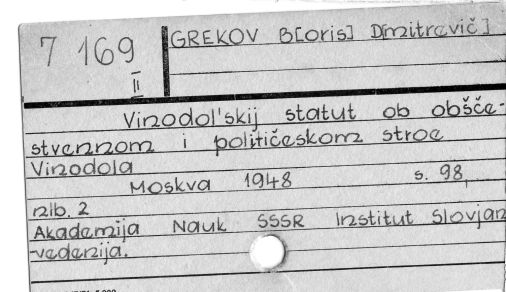 7 169
II
GREKOV B[oris] D[mitrevič]
Vinodol'skij statut ob obšče-
stvennom i političeskom stroe
Vinodola
Moskva 1948 s. 98,
nlb. 2
Akademija Nauk SSSR Institut Slovjan
-vedenija.